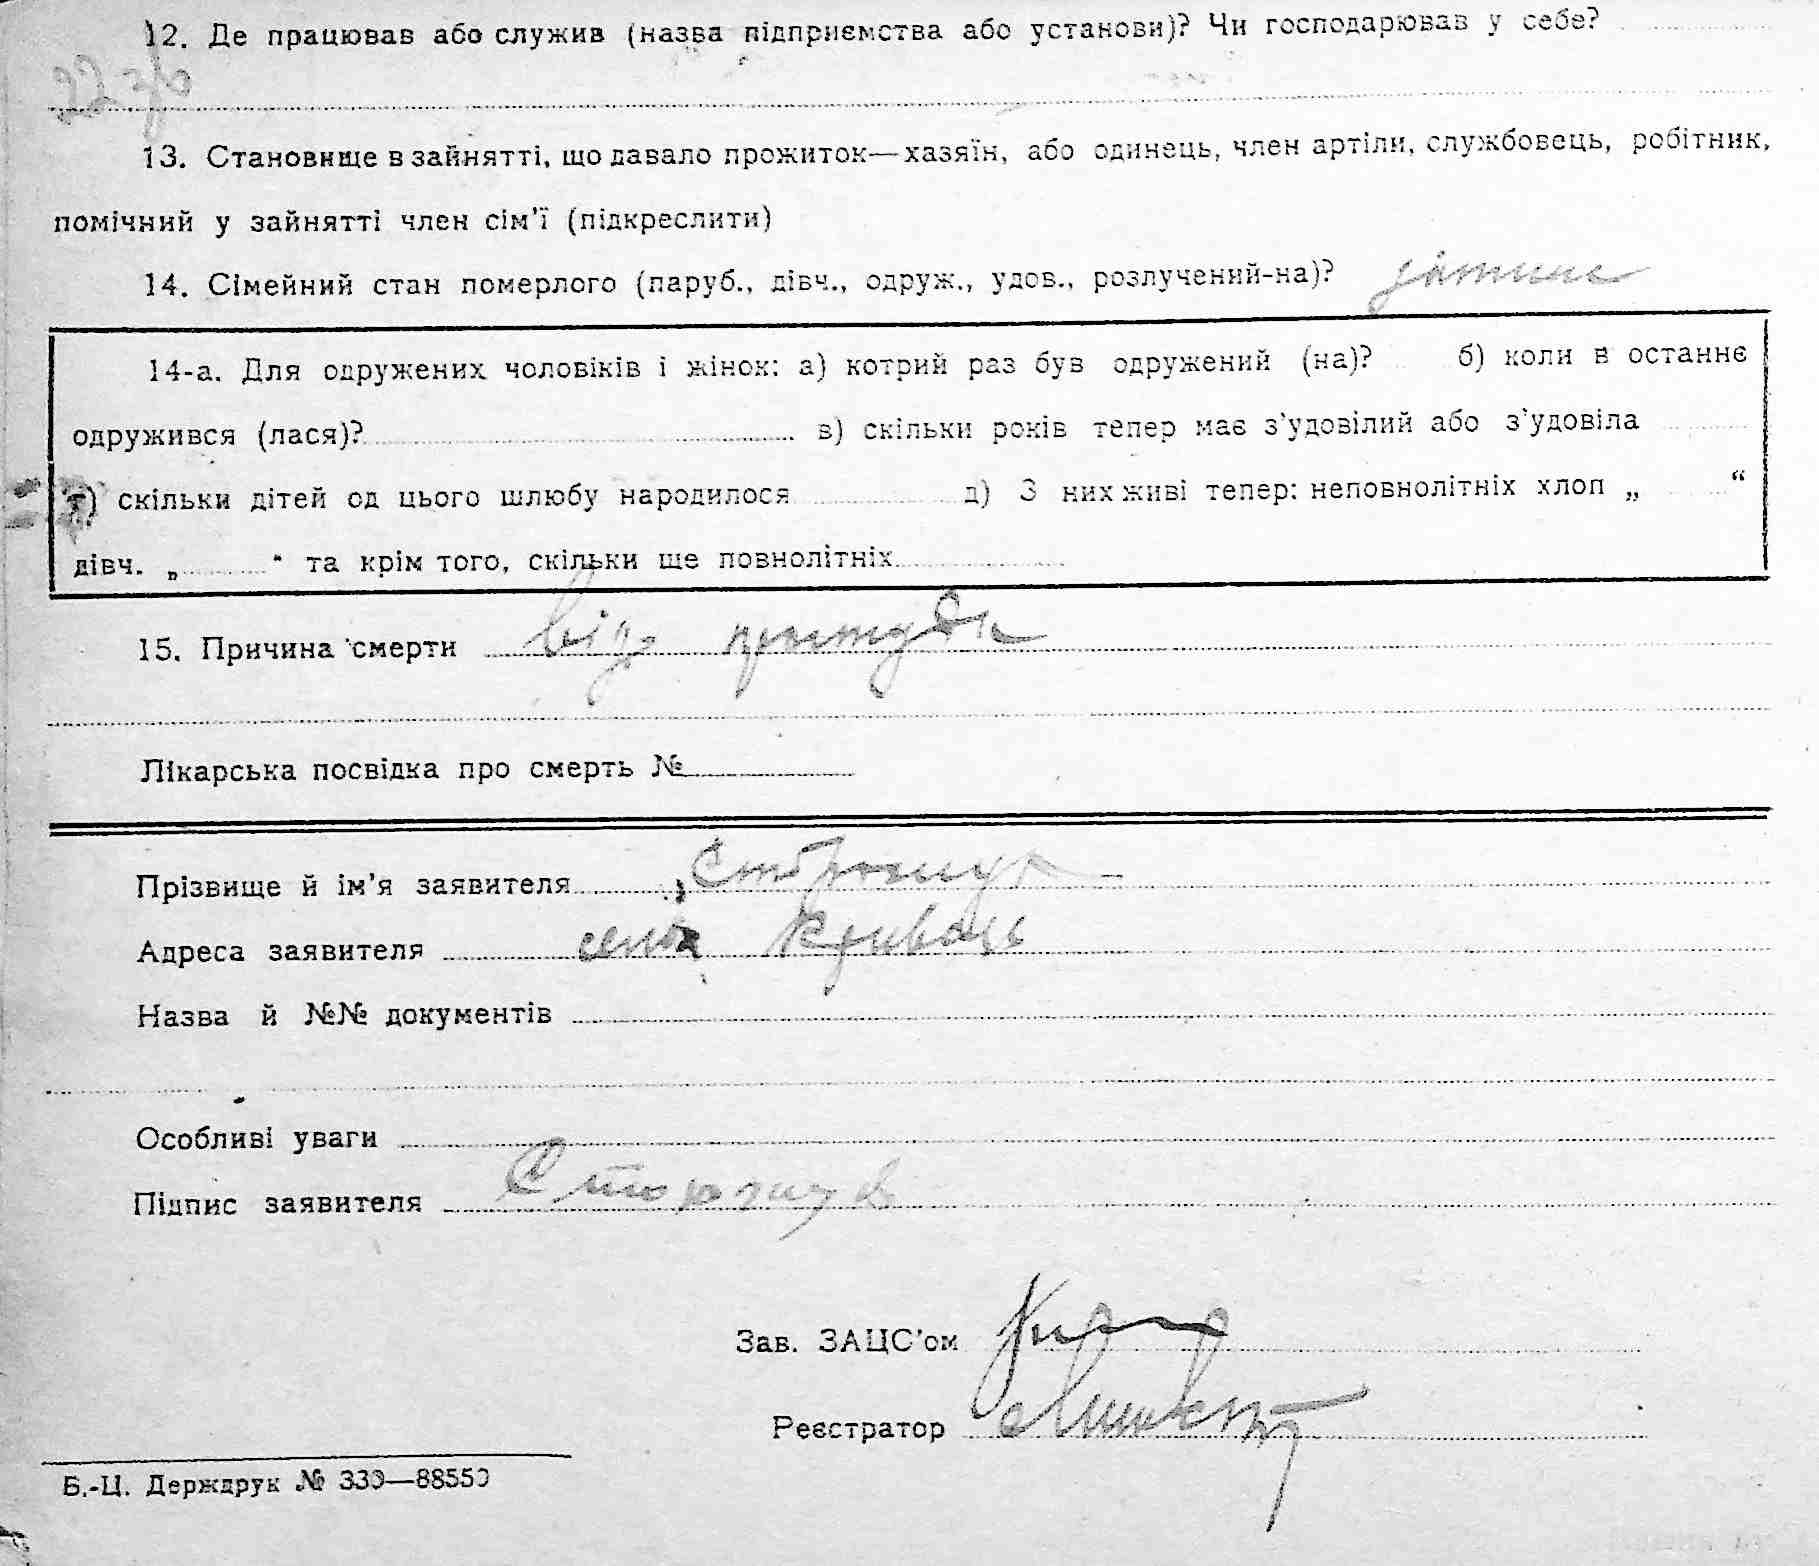 12. Де працював або служив (назва підприємства або установи)? Чи господарював у себе?
13. Становище в зайнятті, що давало прожиток—хазяїн, або одинець, член артіли, службовець, робітник,
помічний у зайнятті член сім'ї (підкреслити)
14. Сімейний стан померлого (паруб., дівч., одруж., удов., розлучений-на)? дитина
14-а. Для одружених чоловіків і жінок: а) котрий раз був одружений (на)? б) коли в останнє
одружився (лася)? в) скільки років тепер має з'удовілий або з'удовіла
г) скільки дітей од цього шлюбу народилося д) З них живі тепер: неповнолітніх хлоп „ “
дівч. „ “ та крім того, скільки ще повнолітніх
15. Причина смерти від простуди
Лікарська посвідка про смерть №
Прізвище й ім'я заявителя Сторощук
Адреса заявителя село Кривець
Назва й №№ документів
Особливі уваги
Підпис заявителя
Зав. ЗАЦС'ом
Реєстратор
Б.-Ц. Держдрук № 330—88550